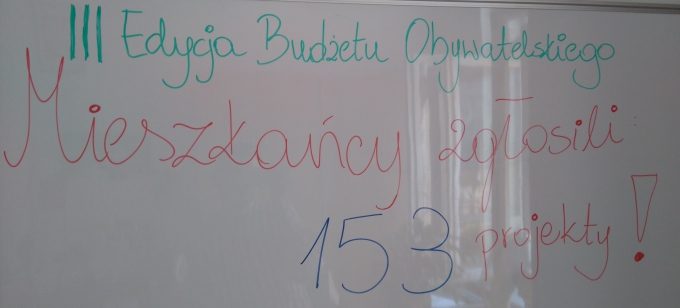 III Edycja Budżetu Obywatelskiego
Mieszkańcy zgłosili:
153 projekty!